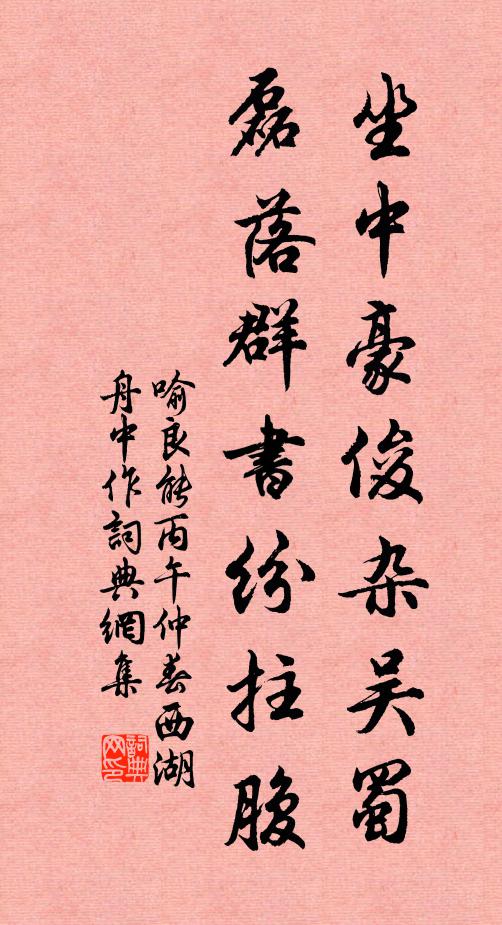 坐中豪俊杂吴蜀
磊落群书纷拄腹
喻良能丙午仲春西湖
舟中作詞典網集
詞典网印